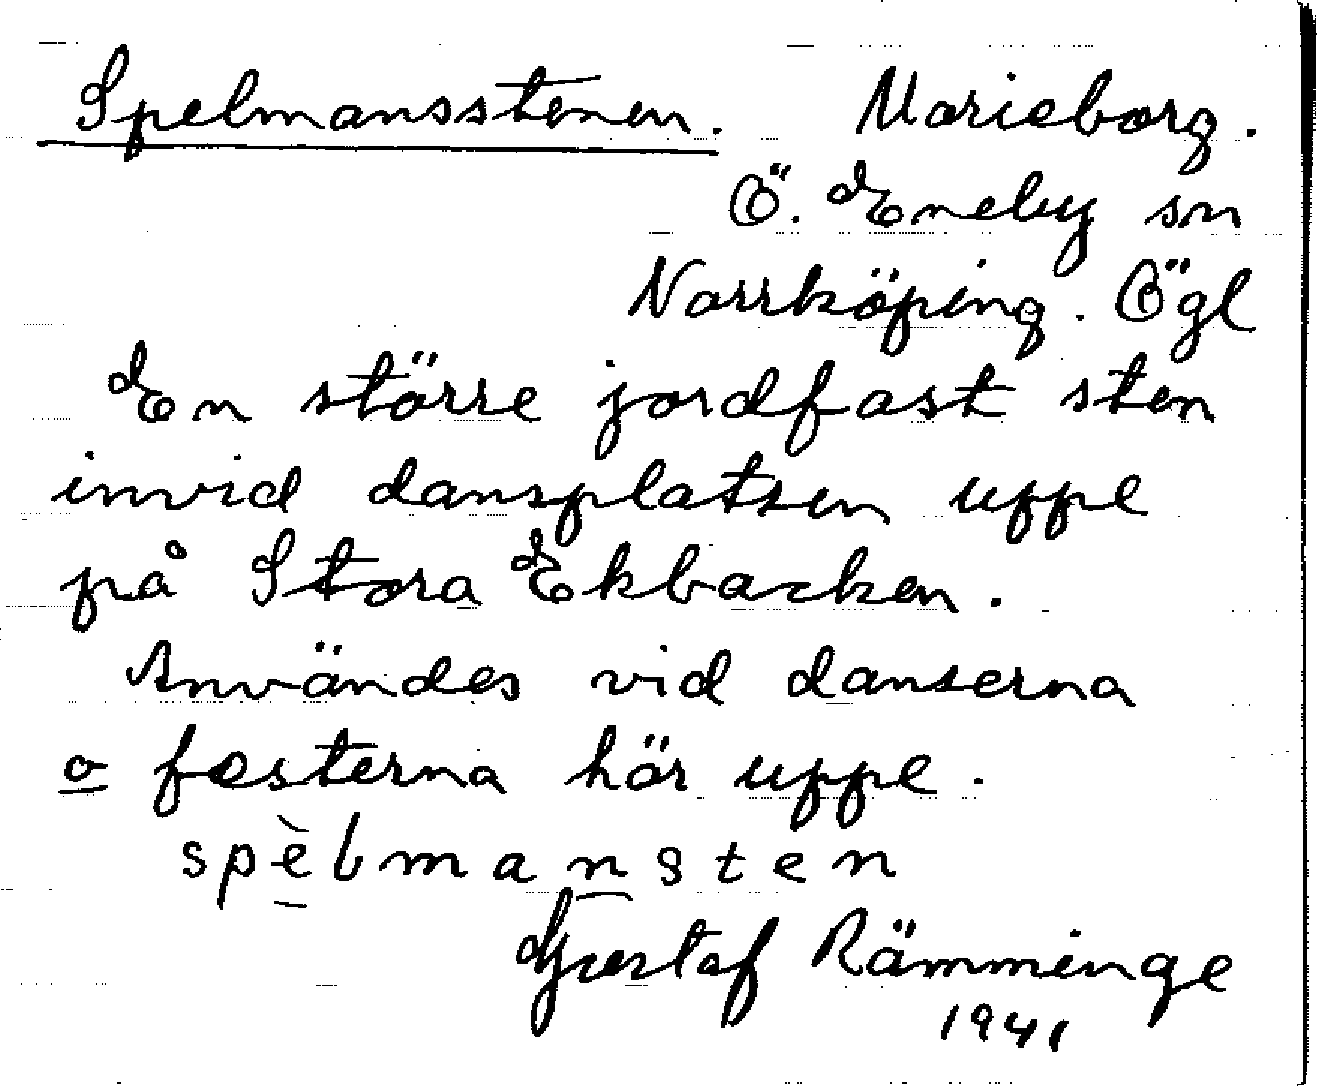 Spelmansstenen. Marieborg.
Ö. Eneby sn
Norrköping. Ögl
En större jordfast sten
invid dansplatsen uppe
på Stora Ekbacken.
Användes vid danserna
o festerna här uppe.
spèlmansten
Gustaf Rämminge
1941